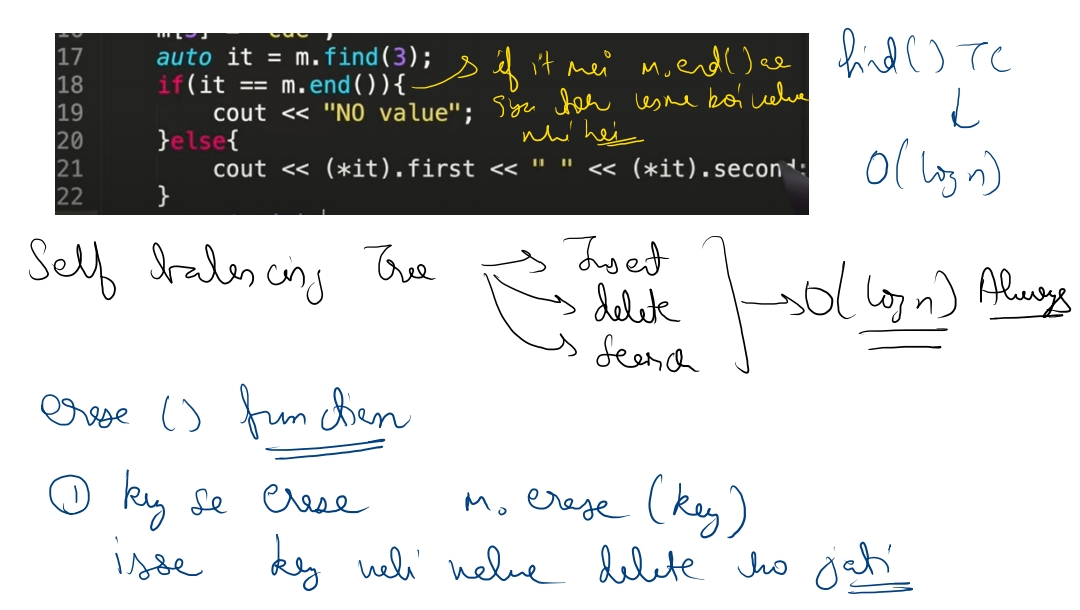 17 auto it = m.find(3);
18 if(it == m.end()){
19 cout << "NO value";
20 }else{
21 cout << (*it).first << " " << (*it).second;
22 }
if it mei m.end() ae
gya toh usme koi value
nhi hei
find() TC
O(log n)
Self balancing Tree
Insert
delete
Search
O(log n) Always
erase () function
① key se erase m.erase (key)
isse key wali value delete ho jati